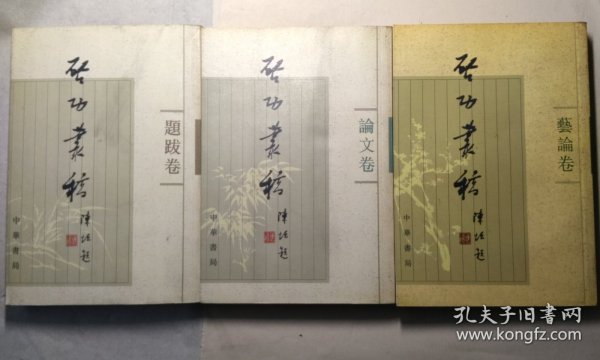 啓功叢稿
題跋卷
陳垣題
中華書局
啓功叢稿
論文卷
陳垣題
中華書局
啓功叢稿
藝論卷
陳垣題
中華書局
孔夫子旧书网
www.kongfz.com